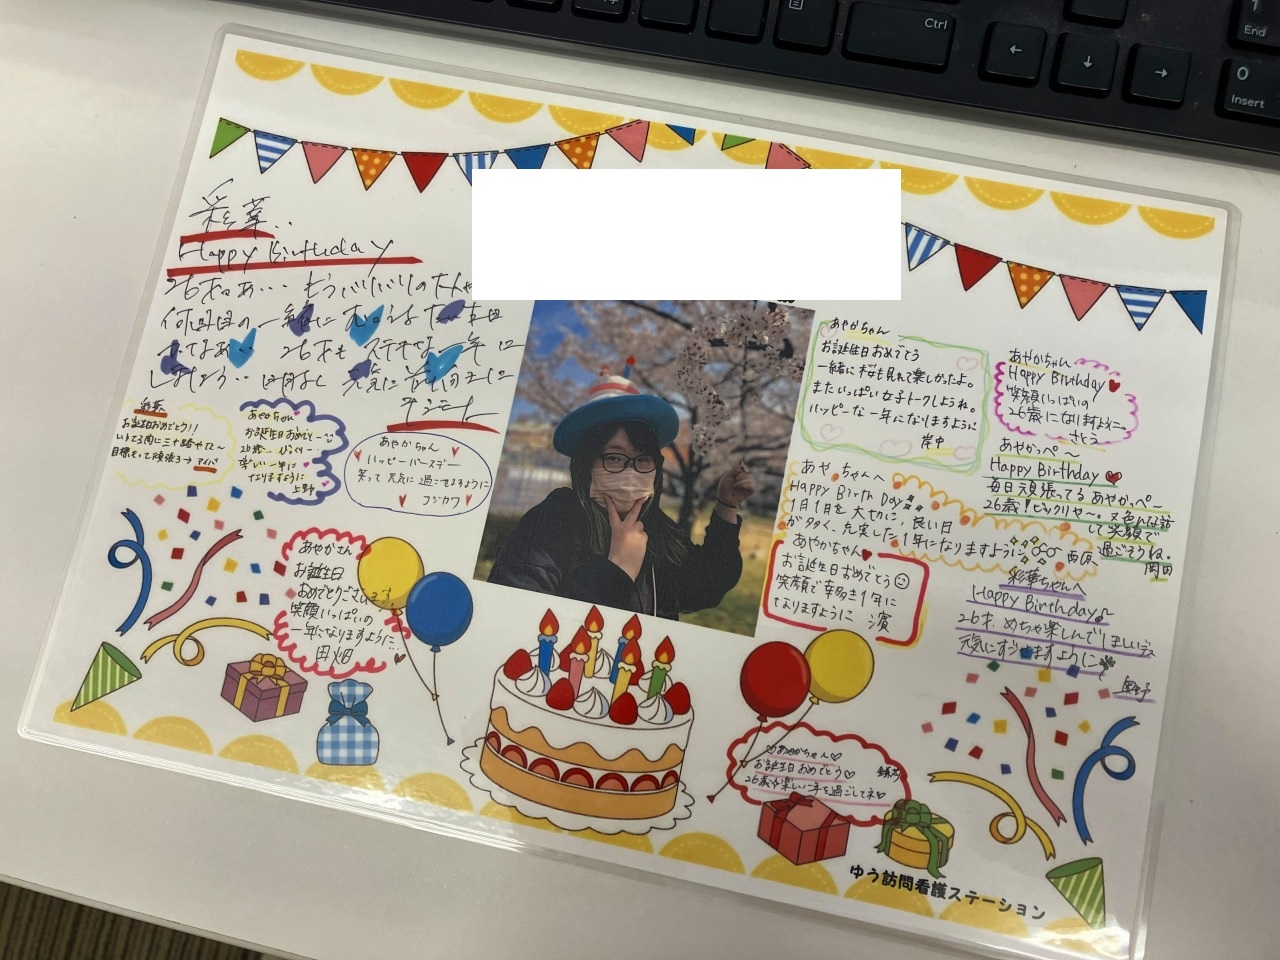 彩華..
Happy Birthday
26才なぁ… もうバリバリの大人や
何回目の一緒にむかえるた
なぁ… 26才も ステキな一年に
しましょう.. 日 元気に前向きに
彩華
お誕生日おめでとう!!
あやかちゃん
お誕生日おめでとー
26歳… びっくりー
楽しい一年に
なりますように
上野
あやかちゃん
ハッピーバースデー
笑って元気に過ごせますように
コジカワ
あやかちゃん
お誕生日おめでとう
一緒に桜も見れて楽しかったよ。
またいっぱい女子トークしようね。
ハッピーな一年になりますように
岸中
あやかちゃん
Happy Birthday
笑顔いっぱいの
26歳になりますように。
さとう
あやかっぺ〜
Happy Birthday
毎日頑張ってる あやかっぺ〜
26歳!ビックリや〜。又色んな話
して笑顔で
過ごそうね。
岡田
あやちゃんへ
Happy Birth Day
1日1日を大切に、良い日
が多く、充実した1年になりますように
あやかちゃん
お誕生日おめでとう
笑顔で幸多き1年に
なりますように 濱
彩華ちゃんへ
Happy Birthday♪
26才、めちゃ楽しんでほしいデス
元気にすごせますように
奥野
あやかさん
お誕生日
おめでとうございます。
笑顔いっぱいの
一年になりますように…
田畑
♡あやかちゃん♡
お誕生日おめでとう♡
26歳も楽しい1年を過ごしてネ♡
ゆう訪問看護ステーション
Ctrl
←
↓
→
1
End
0
Insert